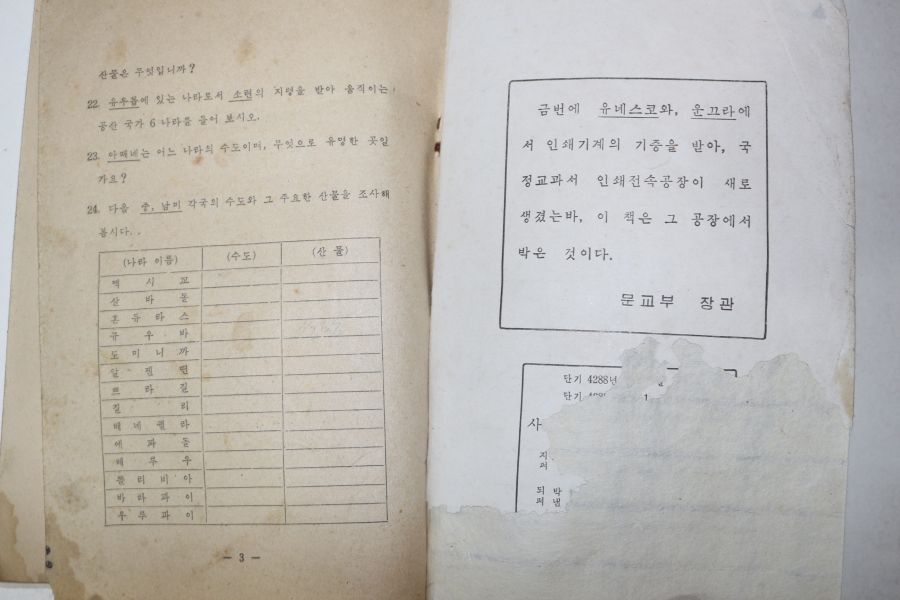 산물은 무엇입니까?
22. 유우롭에 있는 나라로서 소련의 지령을 받아 움직이는
공산 국가 6 나라를 들어 보시오.
23. 아떼네는 어느 나라의 수도이며, 무엇으로 유명한 곳일
까요?
24. 다음 중, 남미 각국의 수도와 그 주요한 산물을 조사해
봅시다.
(나라 이름) (수도) (산 물)
멕 시 코
산 바 돌
혼 듀 라 스
큐 우 바
도 미 니 까
알 젠 띤
브 라 질
칠 리
베 네 쥘 라
에 콰 돌
페 루 우
볼 리 비 아
파 라 과 이
우 루 과 이
— 3 —
금번에 유네스코와, 운끄라에
서 인쇄기계의 기증을 받아, 국
정교과서 인쇄전속공장이 새로
생겼는바, 이 책은 그 공장에서
박은 것이다.
문교부 장관
단기 4288년
단기
사
지
펴
되 박
펴 냄